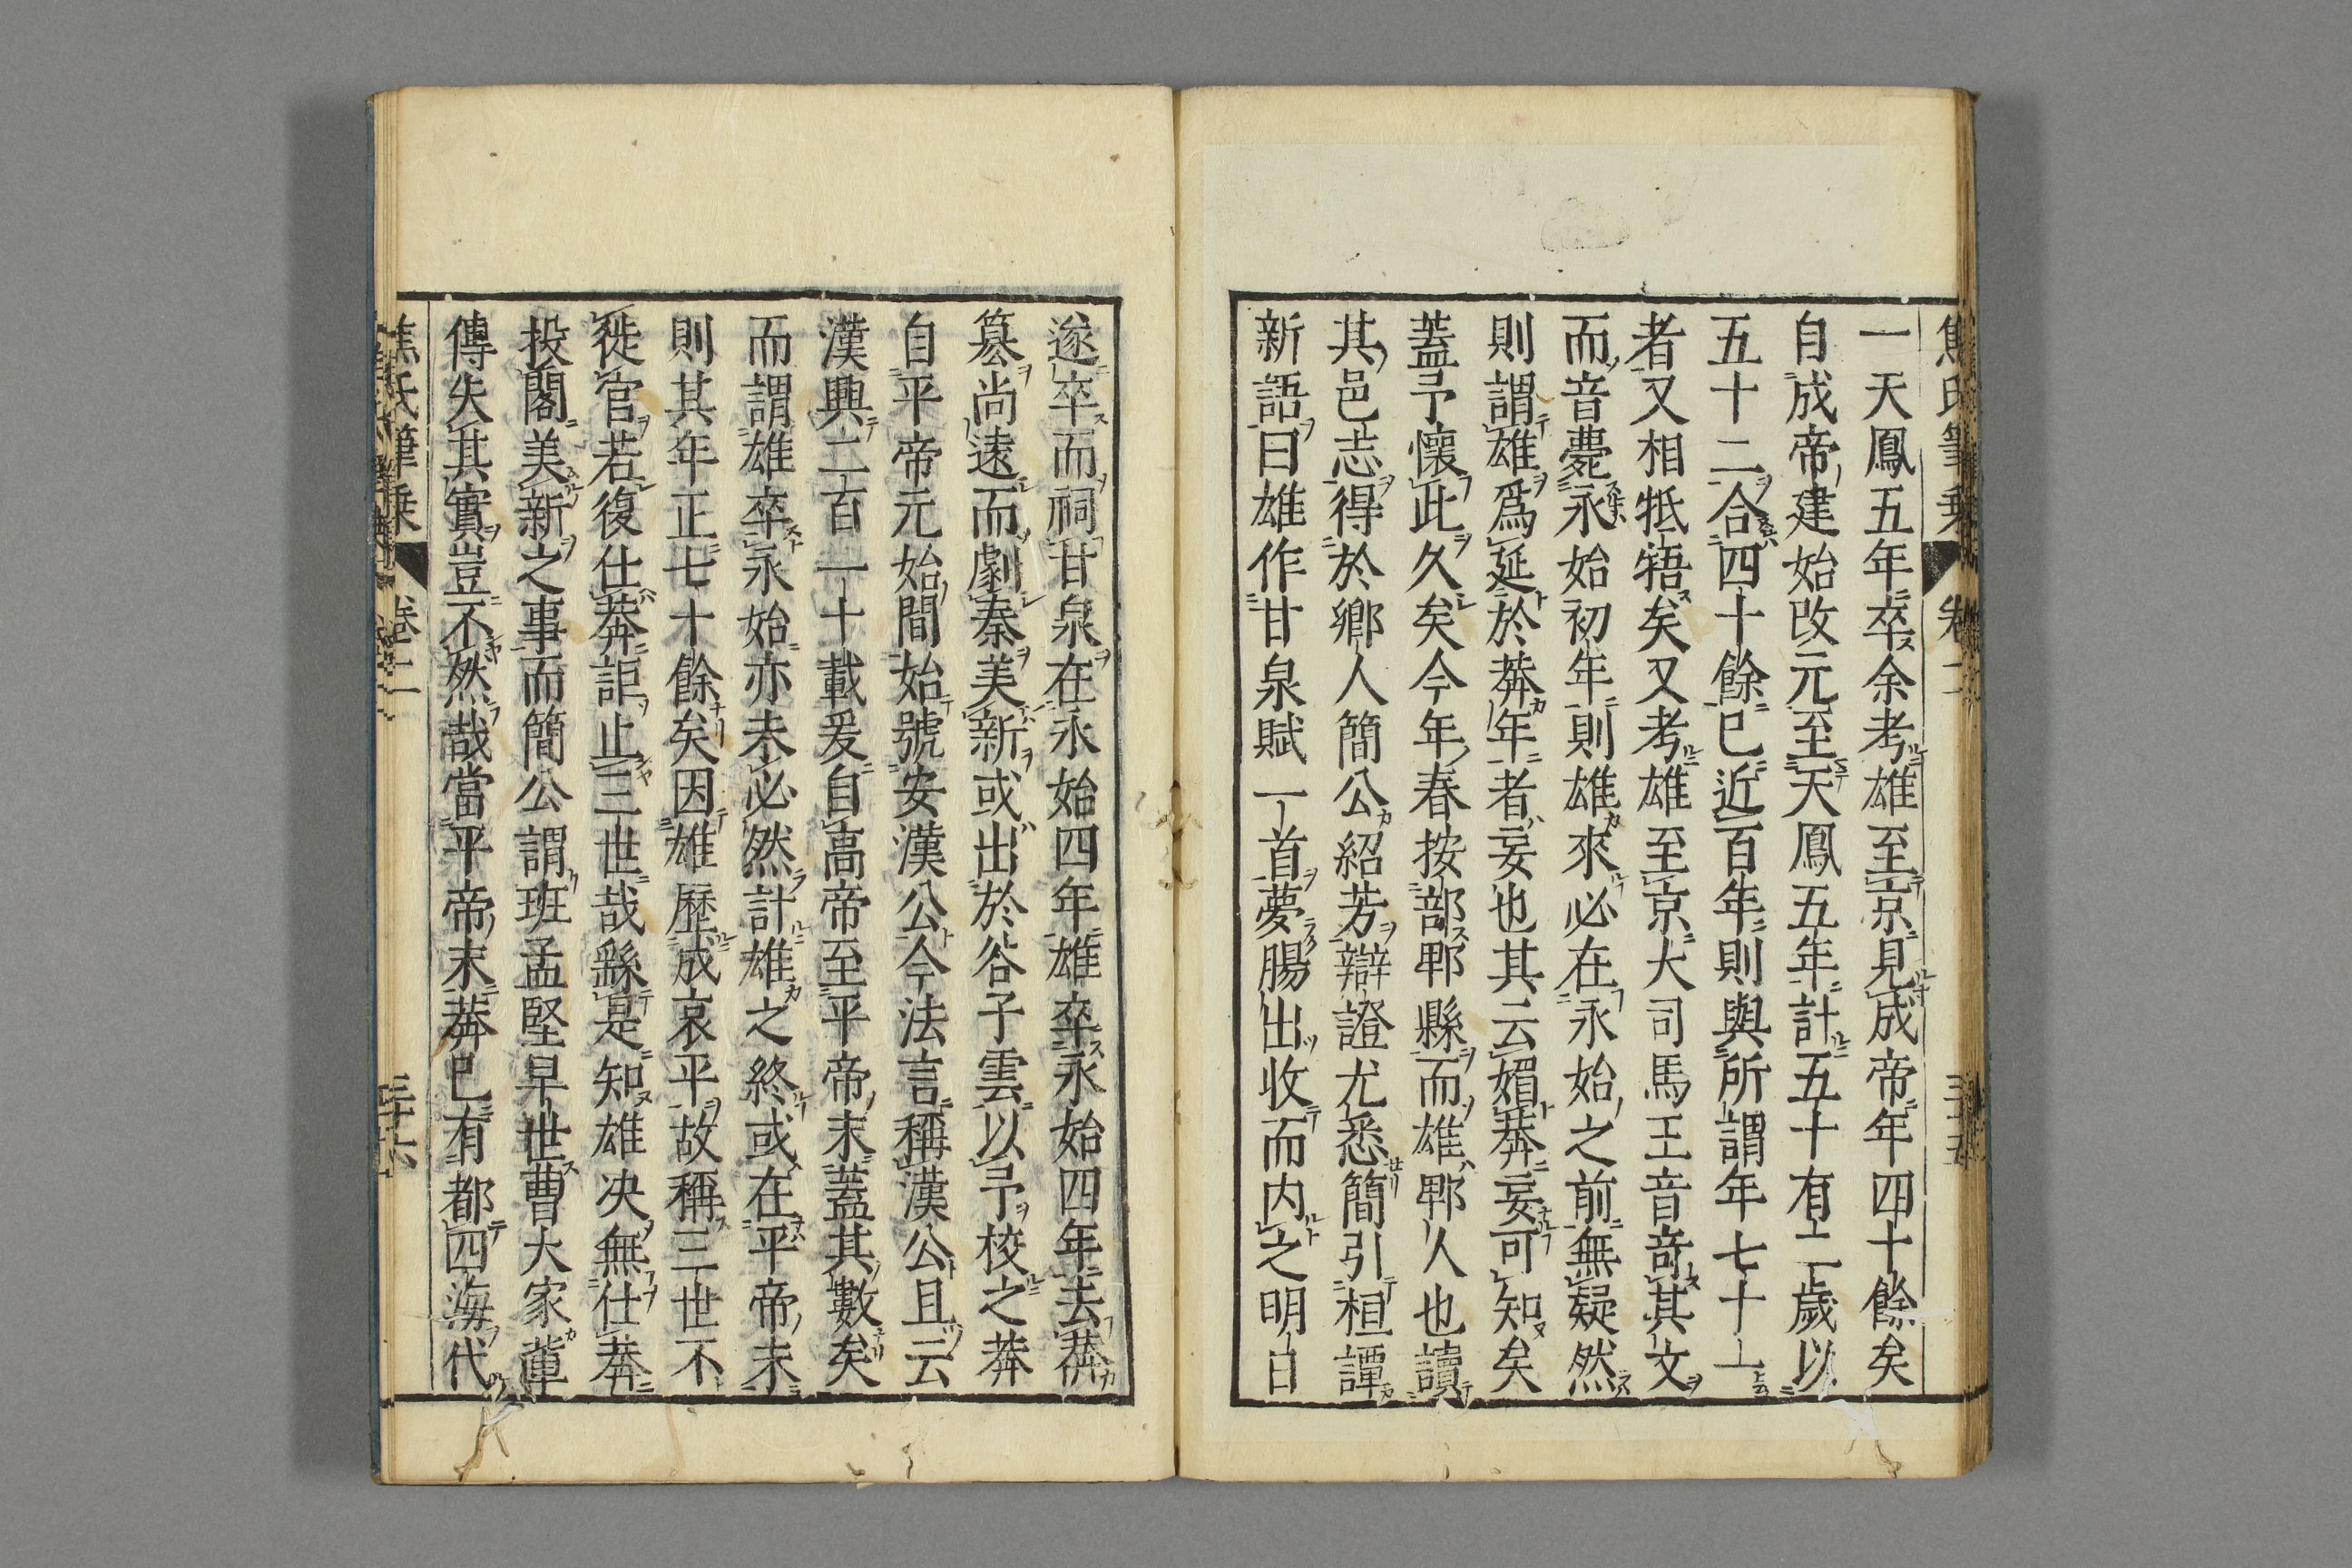 一天鳳五年卒余考雄至京見成帝年四十餘矣
自成帝建始改元至天鳳五年計五十有二歲以
五十二合四十餘已近百年則與所謂年七十一
者又相牴牾矣又考雄至京大司馬王音奇其文
而音薨永始初年則雄來必在永始之前無疑然
則謂雄爲延於莽年者妄也其云媚莽妄可知矣
蓋予懷此久矣今年春按部郫縣而雄郫人也讀
其邑志得於鄉人簡公紹芳辯證尤悉簡引桓譚
新語曰雄作甘泉賦一首夢腸出收而内之明日
遂卒而祠甘泉在永始四年雄卒永始四年去莽
篡尚遠而劇秦美新或出於谷子雲以予校之莽
自平帝元始間始號安漢公今法言稱漢公且云
漢興二百一十載爰自高帝至平帝末蓋其數矣
而謂雄卒永始亦未必然計雄之終或在平帝末
則其年正七十餘矣因雄歷成哀平故稱三世不
徙官若復仕莽詎止三世哉繇是知雄决無仕莽
投閣美新之事而簡公謂班孟堅早世曹大家軰
傳失其實豈不然哉當平帝末莽已有都四海代
焦氏筆乗 卷二 三十六